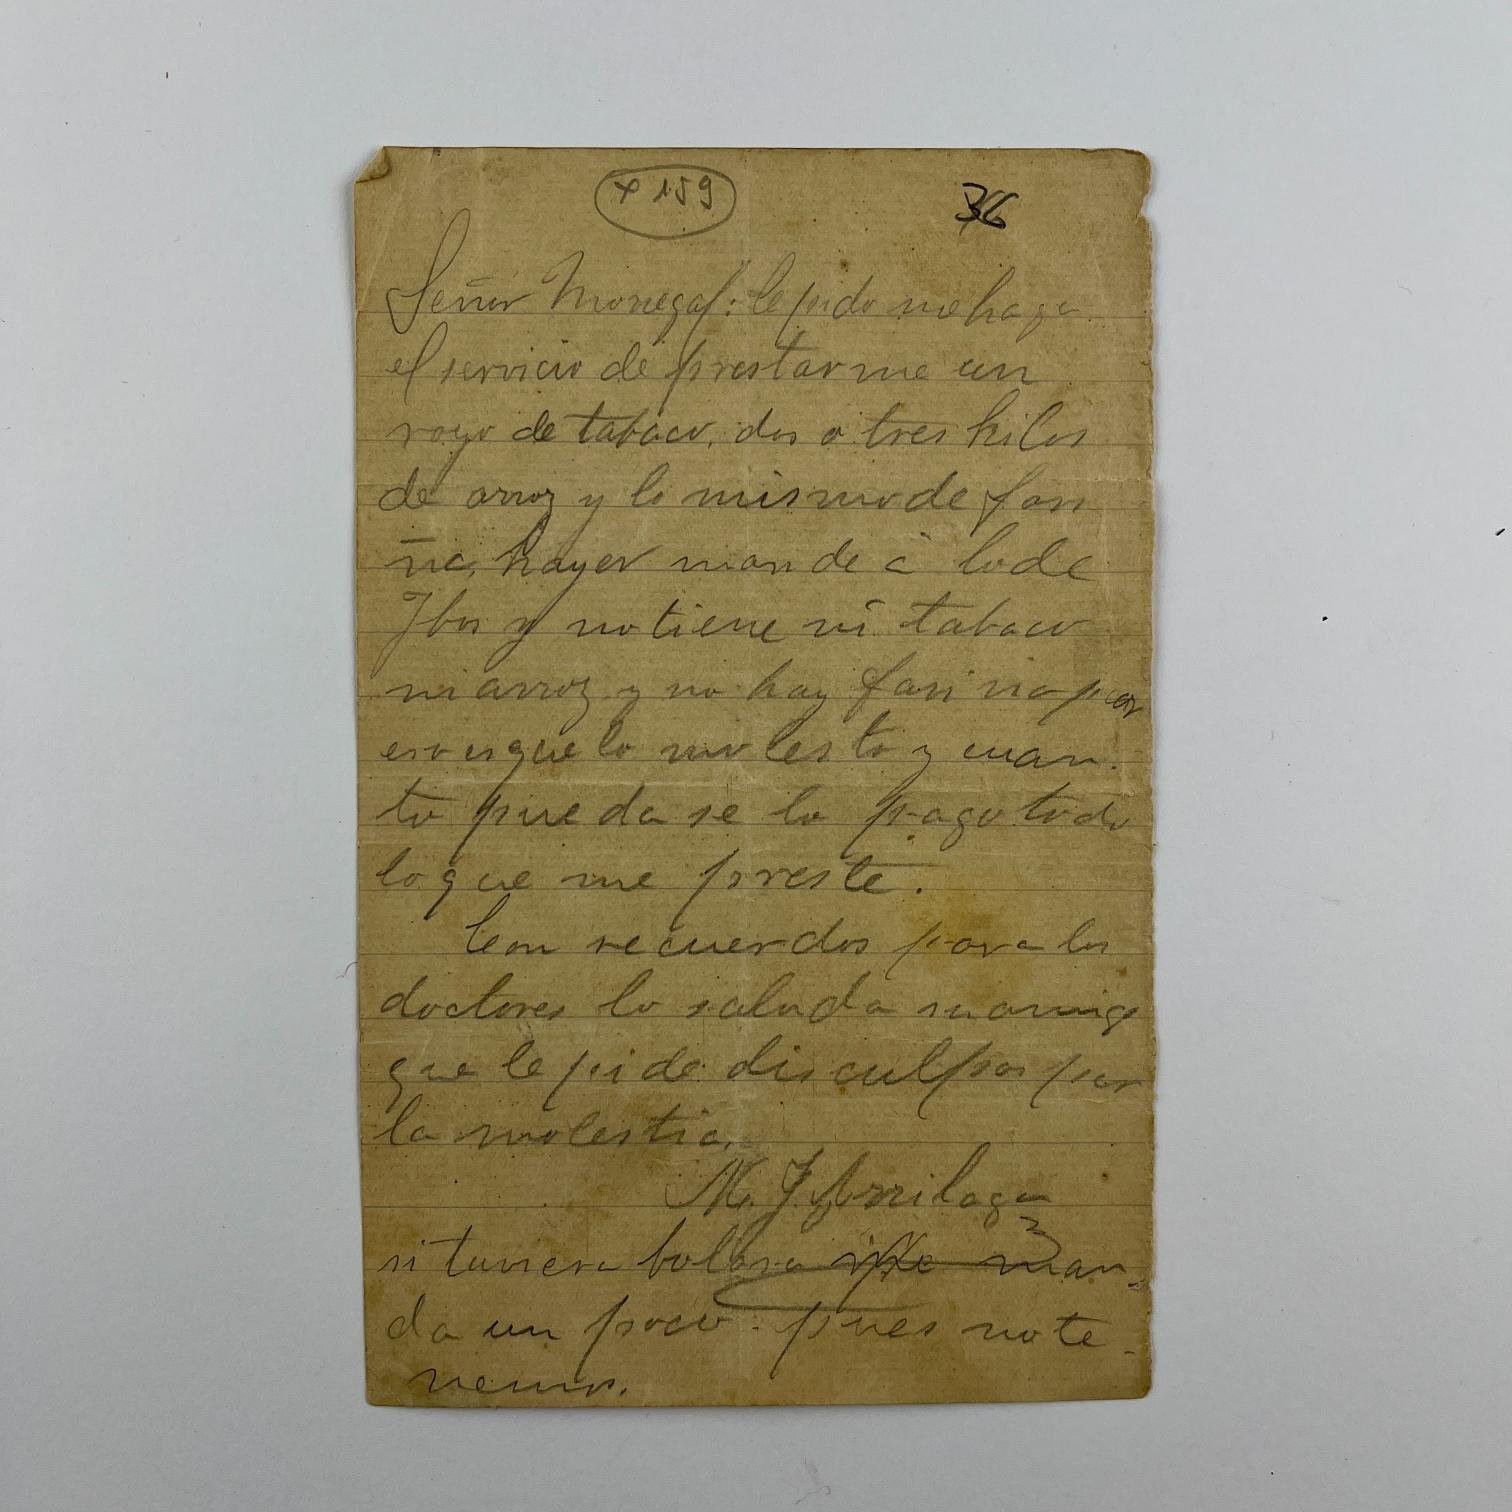 x 159
36
Señor Monegal: le pido me haga
el servicio de prestarme un
royo de tabaco, dos o tres kilos
de arroz y lo mismo de fari
ña, hayer mande á lo de
Ibos y no tiene ni tabaco
ni arroz y no hay farina por
eso es que lo molesto y cuan-
to pueda se lo pago todo
lo que me preste.
Con recuerdos para los
doctores lo saluda su amigo
que le pide disculpas por
la molestia,
M. J. Arrilaga
si tuviera me man-
da un poco. pues no te-
nemos.